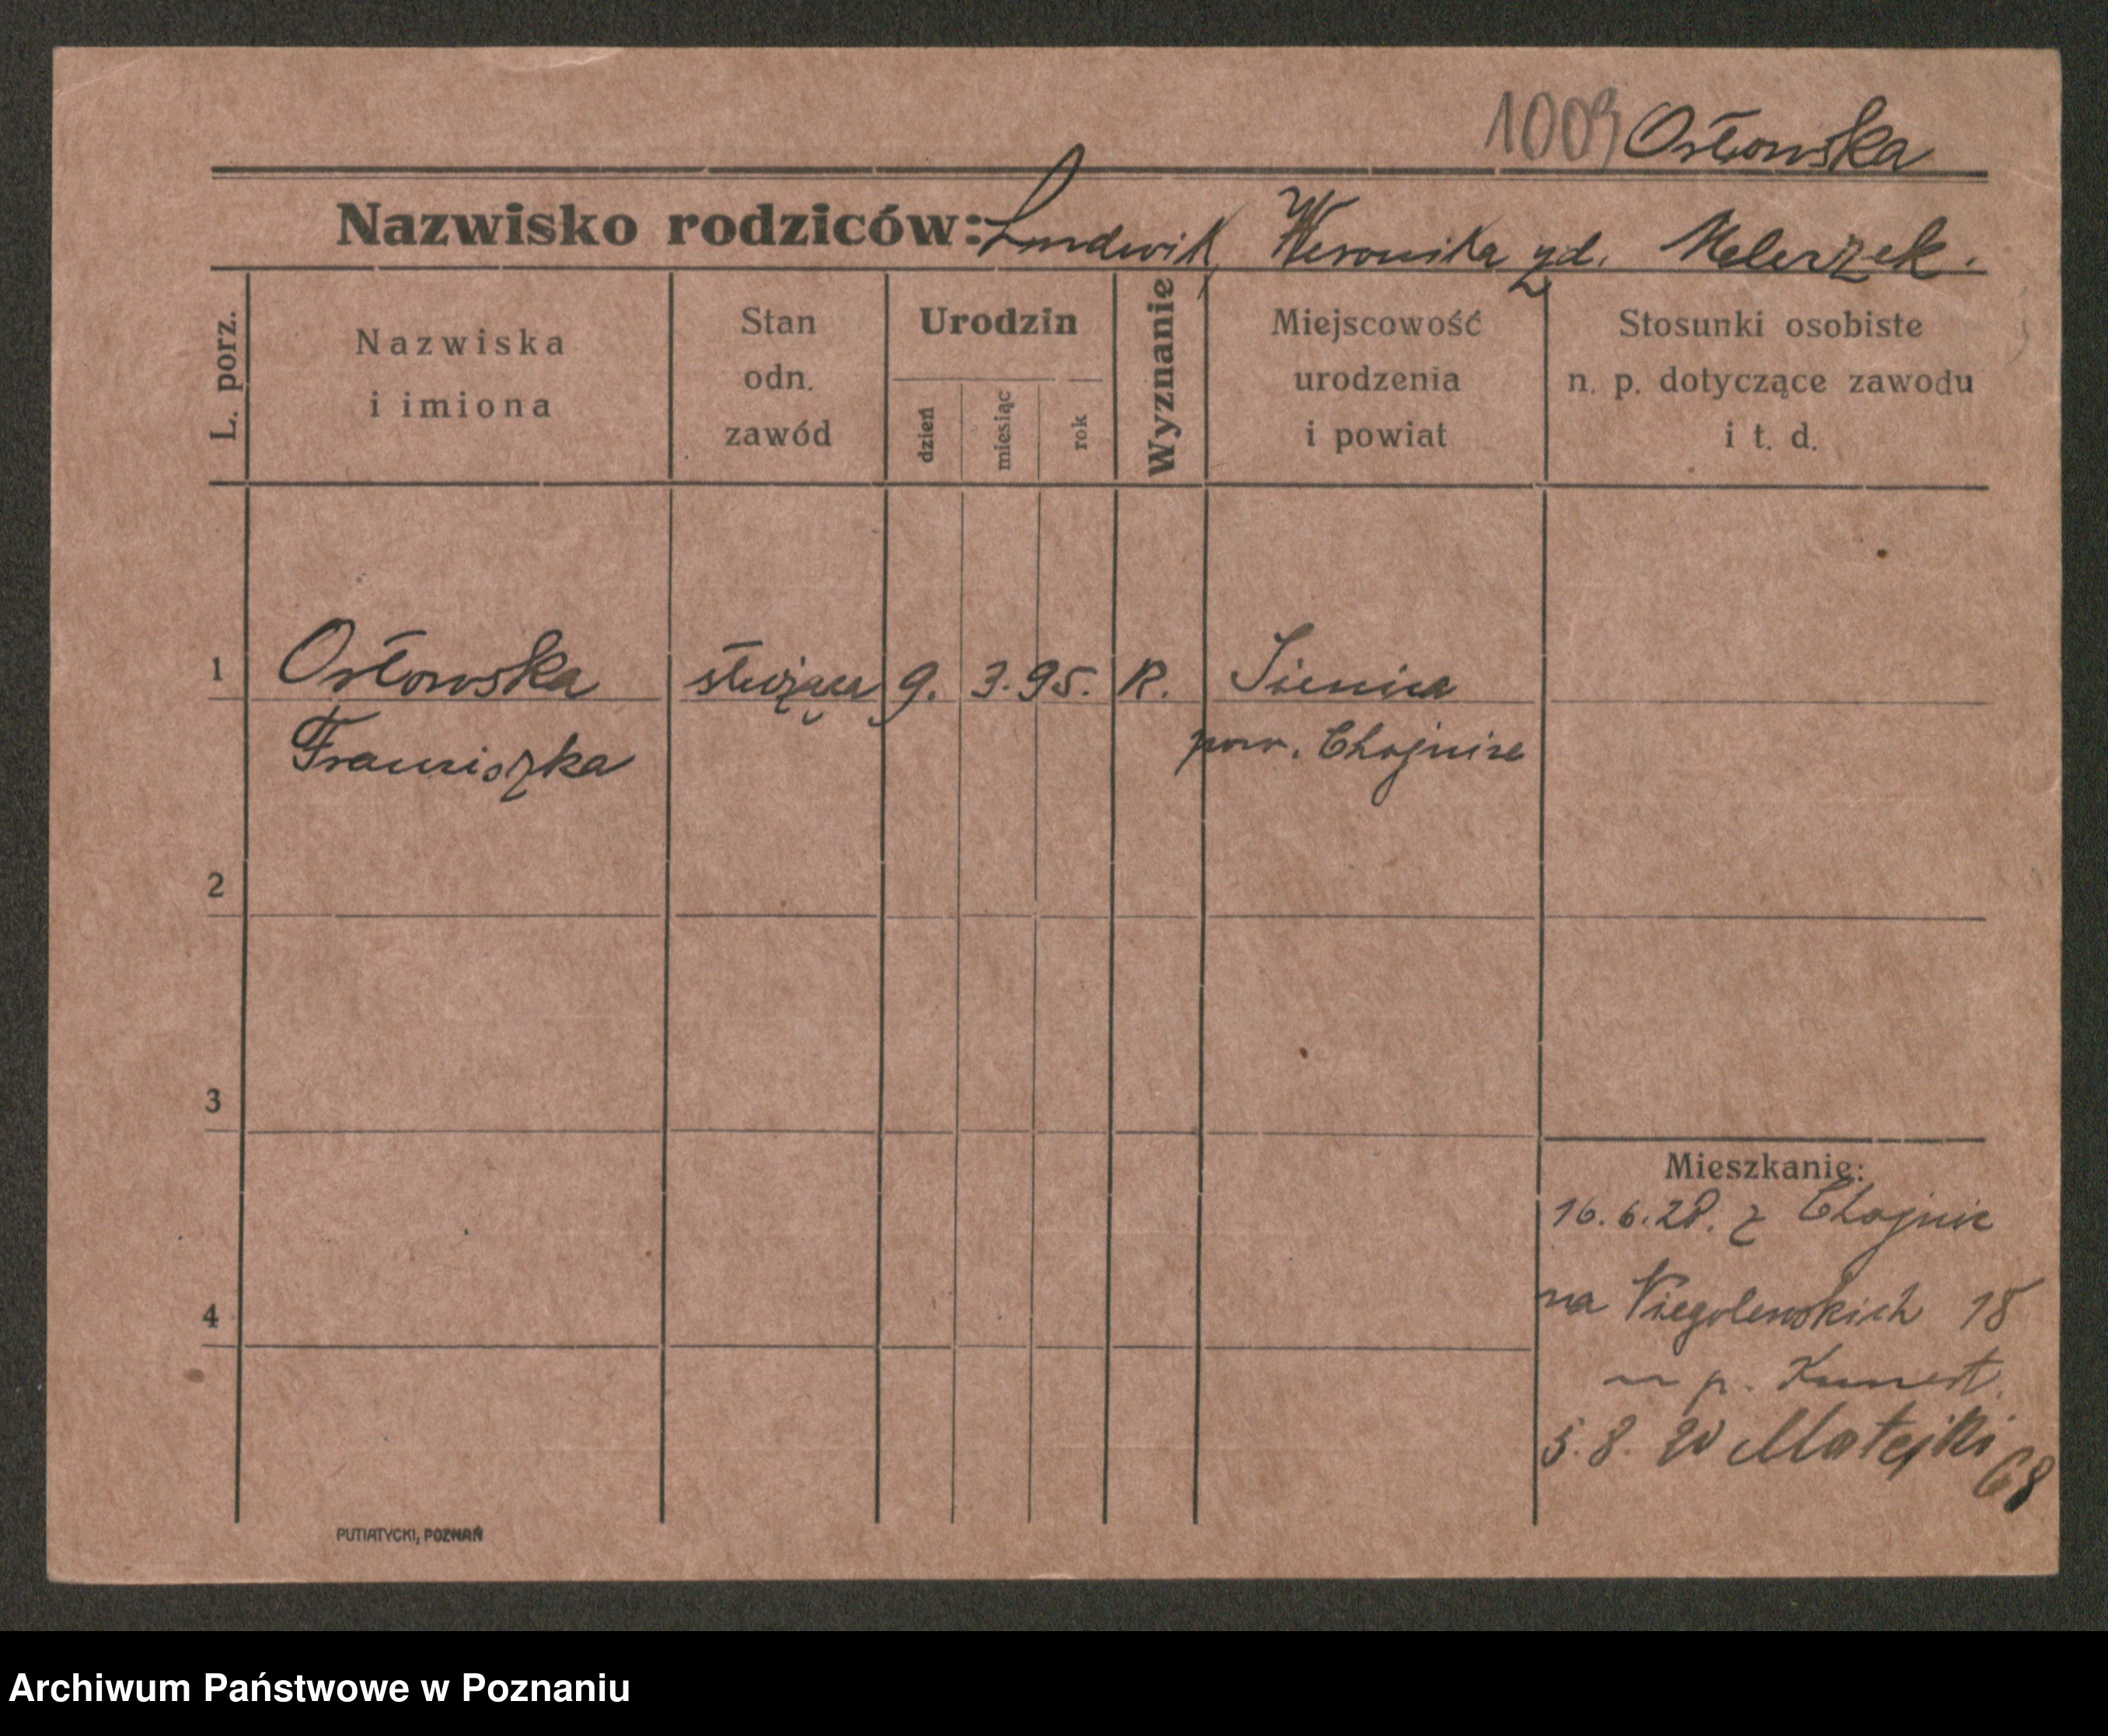 1009 Osłowska
Nazwisko rodziców: Ludwik, Weronika zd. Melerzek.
L. porz.
Nazwiska
i imiona
Stan
odn.
zawód
Urodzin
dzień
miesiąc
rok
Wyznanie
Miejscowość
urodzenia
i powiat
Stosunki osobiste
n. p. dotyczące zawodu
i t. d.
1 Osłowska służąca 9. 3. 95. R.
Franciszka pow. Chojnice
2
3
4
Mieszkanie:
16. 6. 28. z Chojnic
na Niegolewskich 18
p.
5. 8. Matejki
68
PUTIATYCKI, POZNAŃ
Archiwum Państwowe w Poznaniu